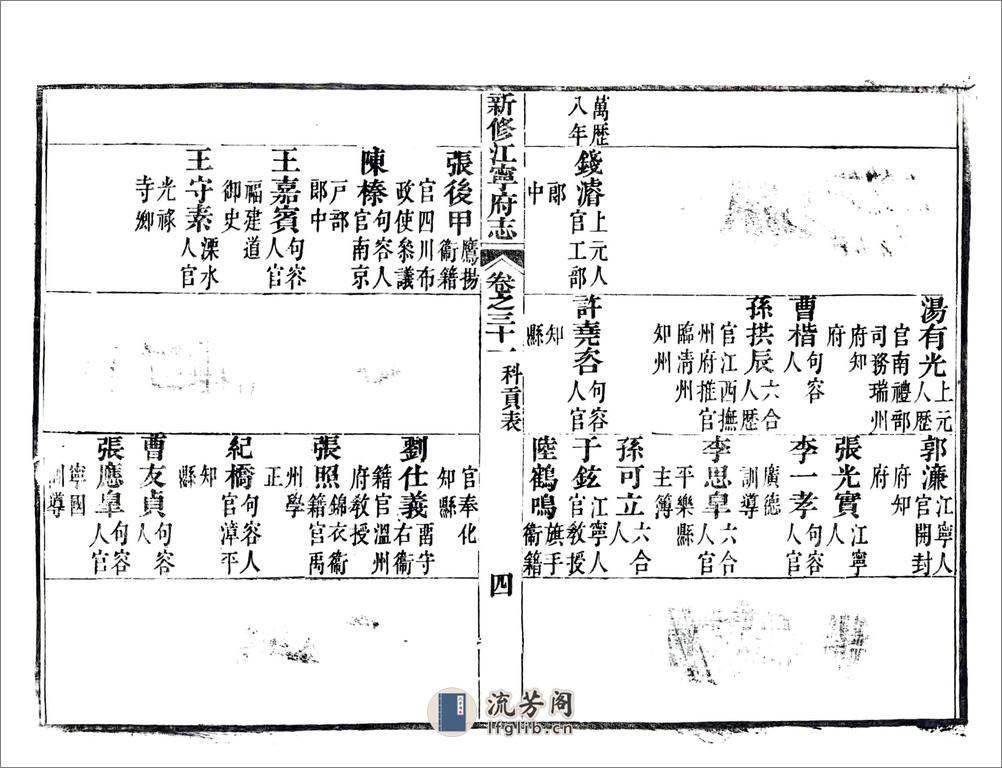 萬歷
八年
錢濬上元人官工部郎中
湯有光上元人歷官南禮部司務瑞州府知府
曹楷句容人
孫拱辰六合人歷官江西撫州府推官臨清州知州
許堯咨句容人官知縣
郭濂江寧人官開封府知府
張光實江寧人
李一孝句容人官廣德訓導
李思皐六合人官平樂縣主簿
孫可立六合人
于鉉江寧人官教授
陸鶴鳴旗手衞籍
新修江寧府志
卷之三十一
科貢表
四
張後甲鷹揚衞籍官四川布政使參議
陳榛句容人官南京戸部郎中
王嘉賓句容人官福建道御史
王守素溧水人官光祿寺卿
官奉化知縣
劉仕義畱守右衞籍官溫州府教授
張照錦衣衞籍官禹州學正
紀橋句容人官漳平知縣
曹友貞句容人
張應皐句容人官寧國訓導
流芳阁
lfglib.cn